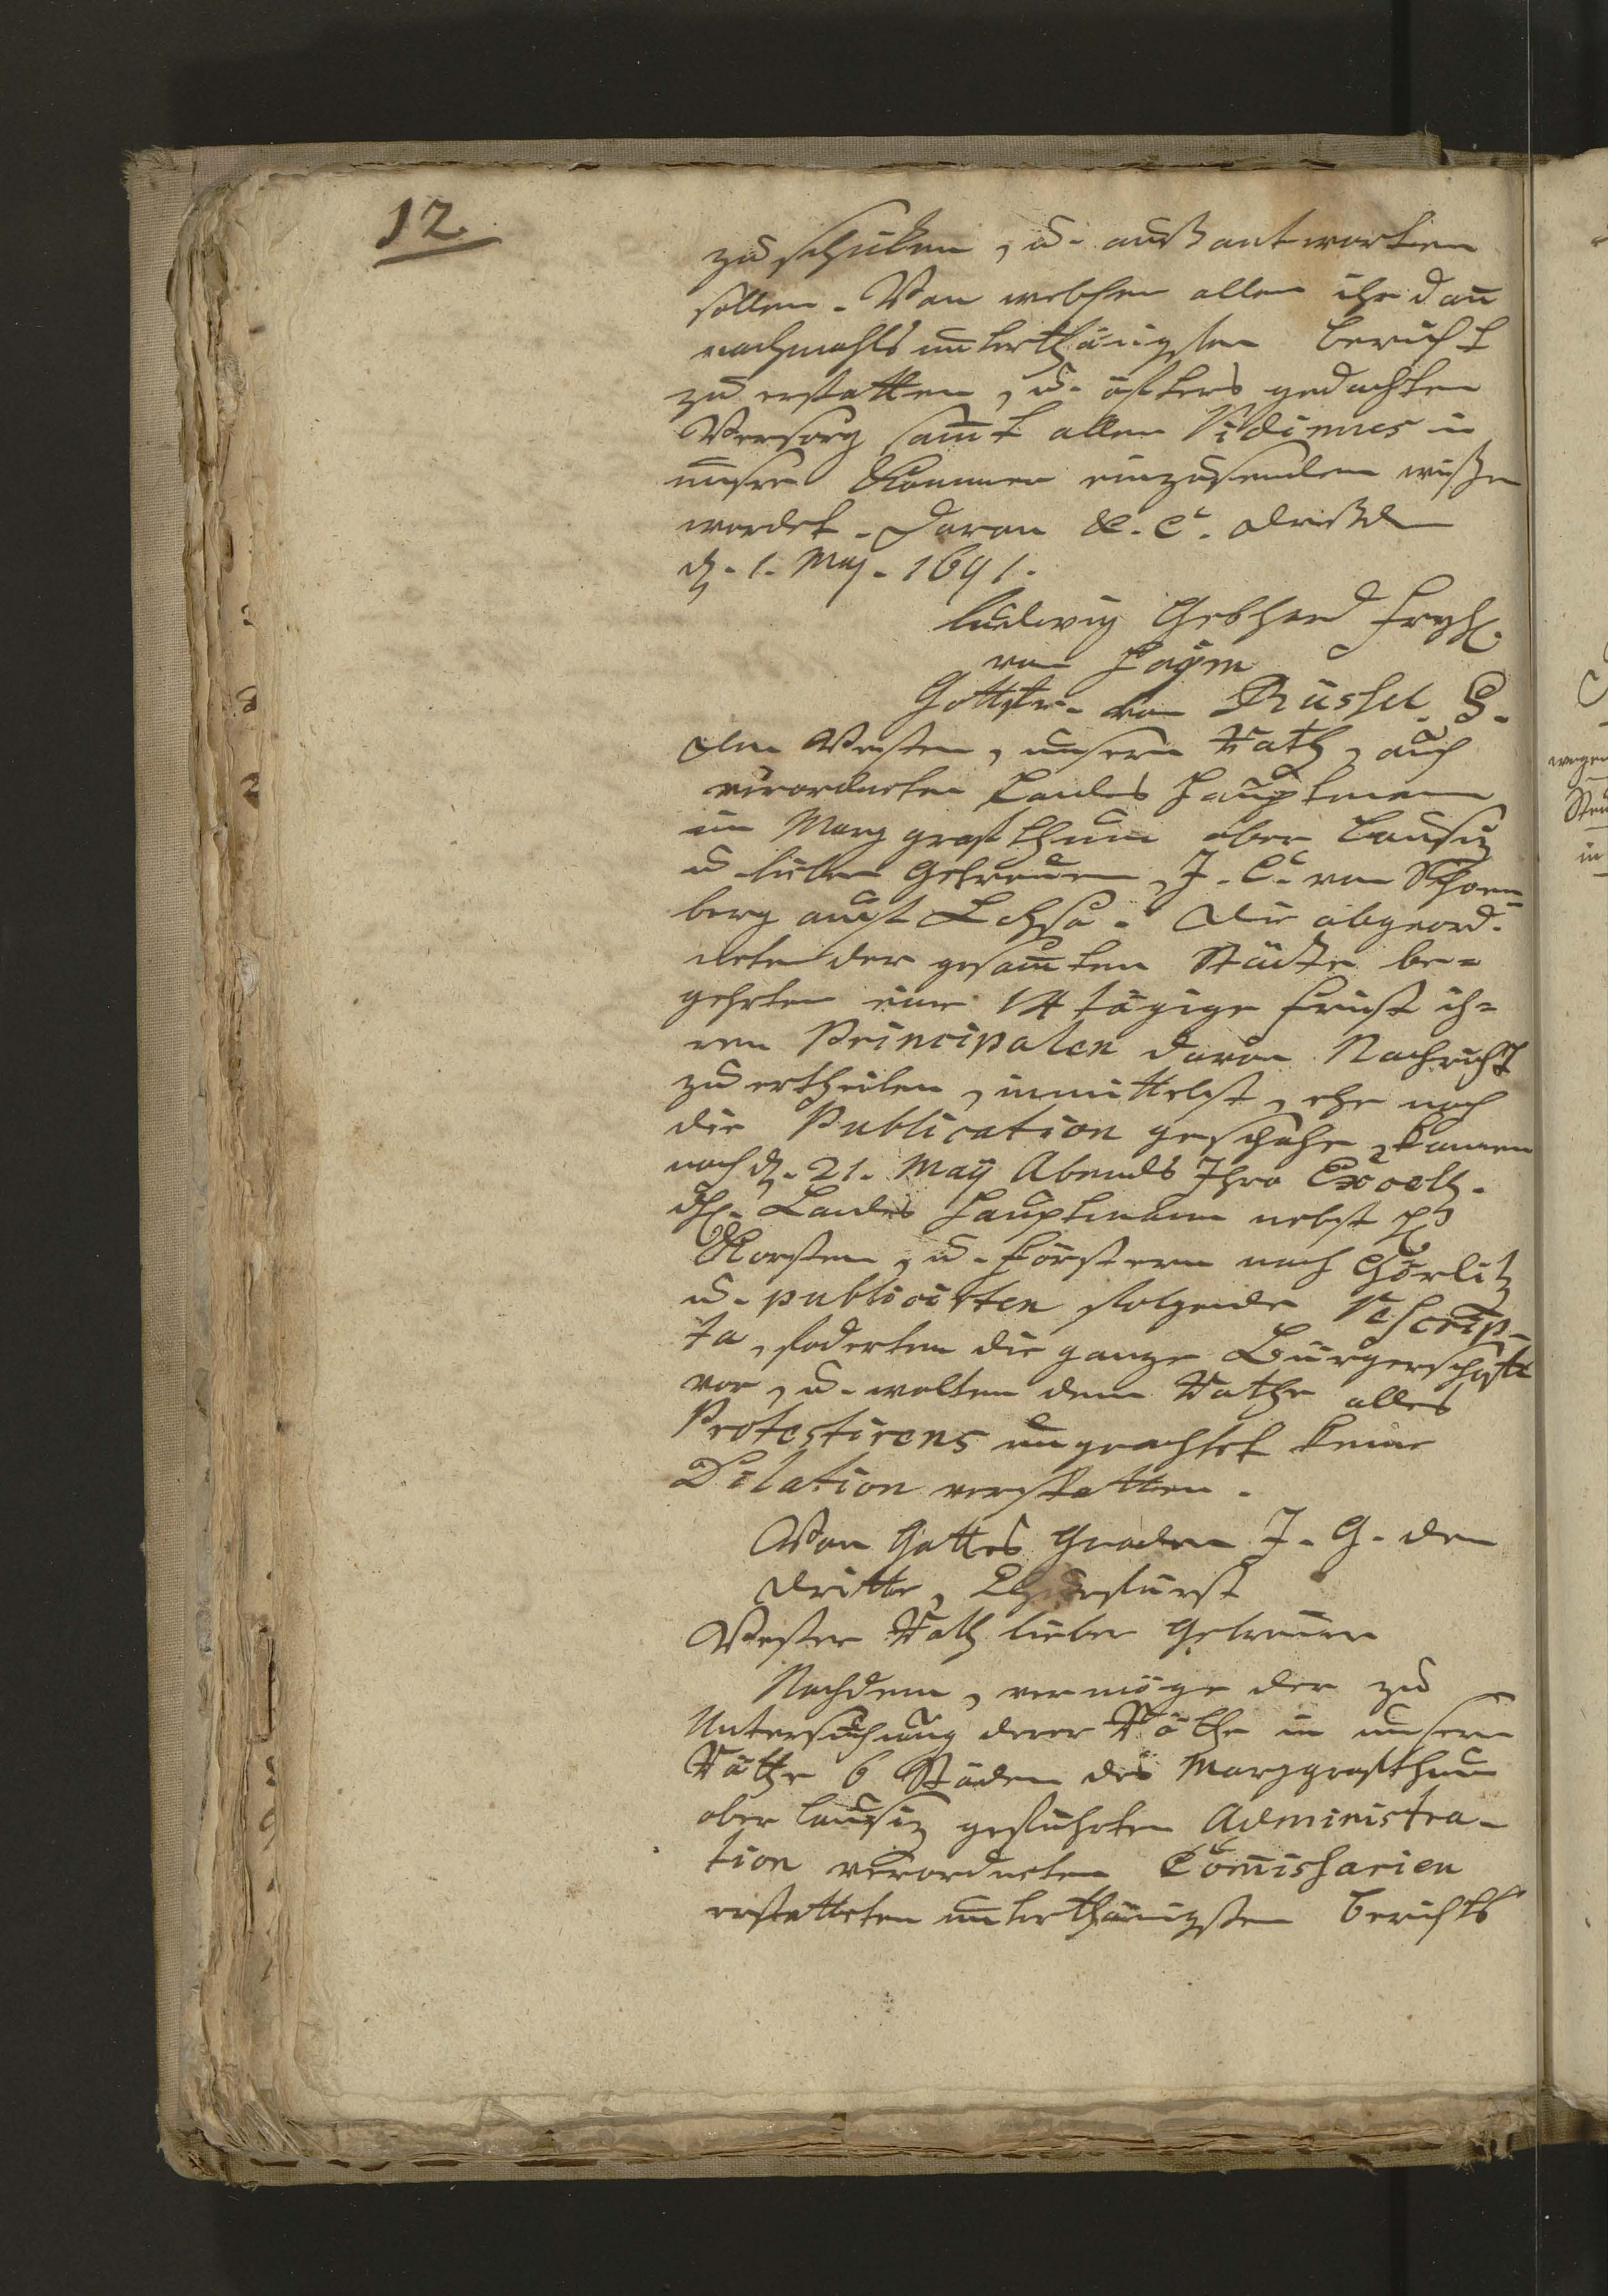 12.
zuschicken, u. außantworten
sollen. Von welchen allen ihr dan̄
nachmahls unterthänigsten bericht
zu erstatten, u. öfters gedachten
Versorg sam̄t allen Vidimus in
unsere Cammer einzusenden wißen
werdet. Daran &. C. Dreßden
d. 1. Maj. 1691.
Ludwig Gebhard Freyh.
von Hoÿm
Gottfr. von Rüssel. S.
Dem Vesten, unsern Rath, auch
verordneten Landes Hauptmann
im Marggrafthum ober Lausiz
u. lieben Getreuen, J. C. von Schoen=
berg auf Lohsa. Die abgeord.
neten der gesam̄ten Städte be=
gehrten eine 14 tägige frist ih=
ren Principalen davon Nachricht
zu ertheilen, inmittelst, ehe noch
die Publication geschahe, kamen
noch d. 21. Maÿ Abends Ihro Excell.
dh. Landes Hauptmann nebst H.
Knorsten, u. Förstern nach Görlitz
u. publicirten folgende Rescrip-
ta, foderten die ganze Bürgerschafft
vor, u. wolten dem Rathe alles
Protestirens ungeachtet keine
Dilation verstatten.
Von Gottes Gnaden J. G. der
Dritte, Churfürst
Vester Rath lieber Getreuer
Nachdem, vermöge der zu
Untersuchung derer Räthe in unsern
Räthe 6 Städen des Marggrafthum
ober Lausiz geführten Administra-
tion verordneten Com̄issarien
erstatteten unterthänigsten berichts